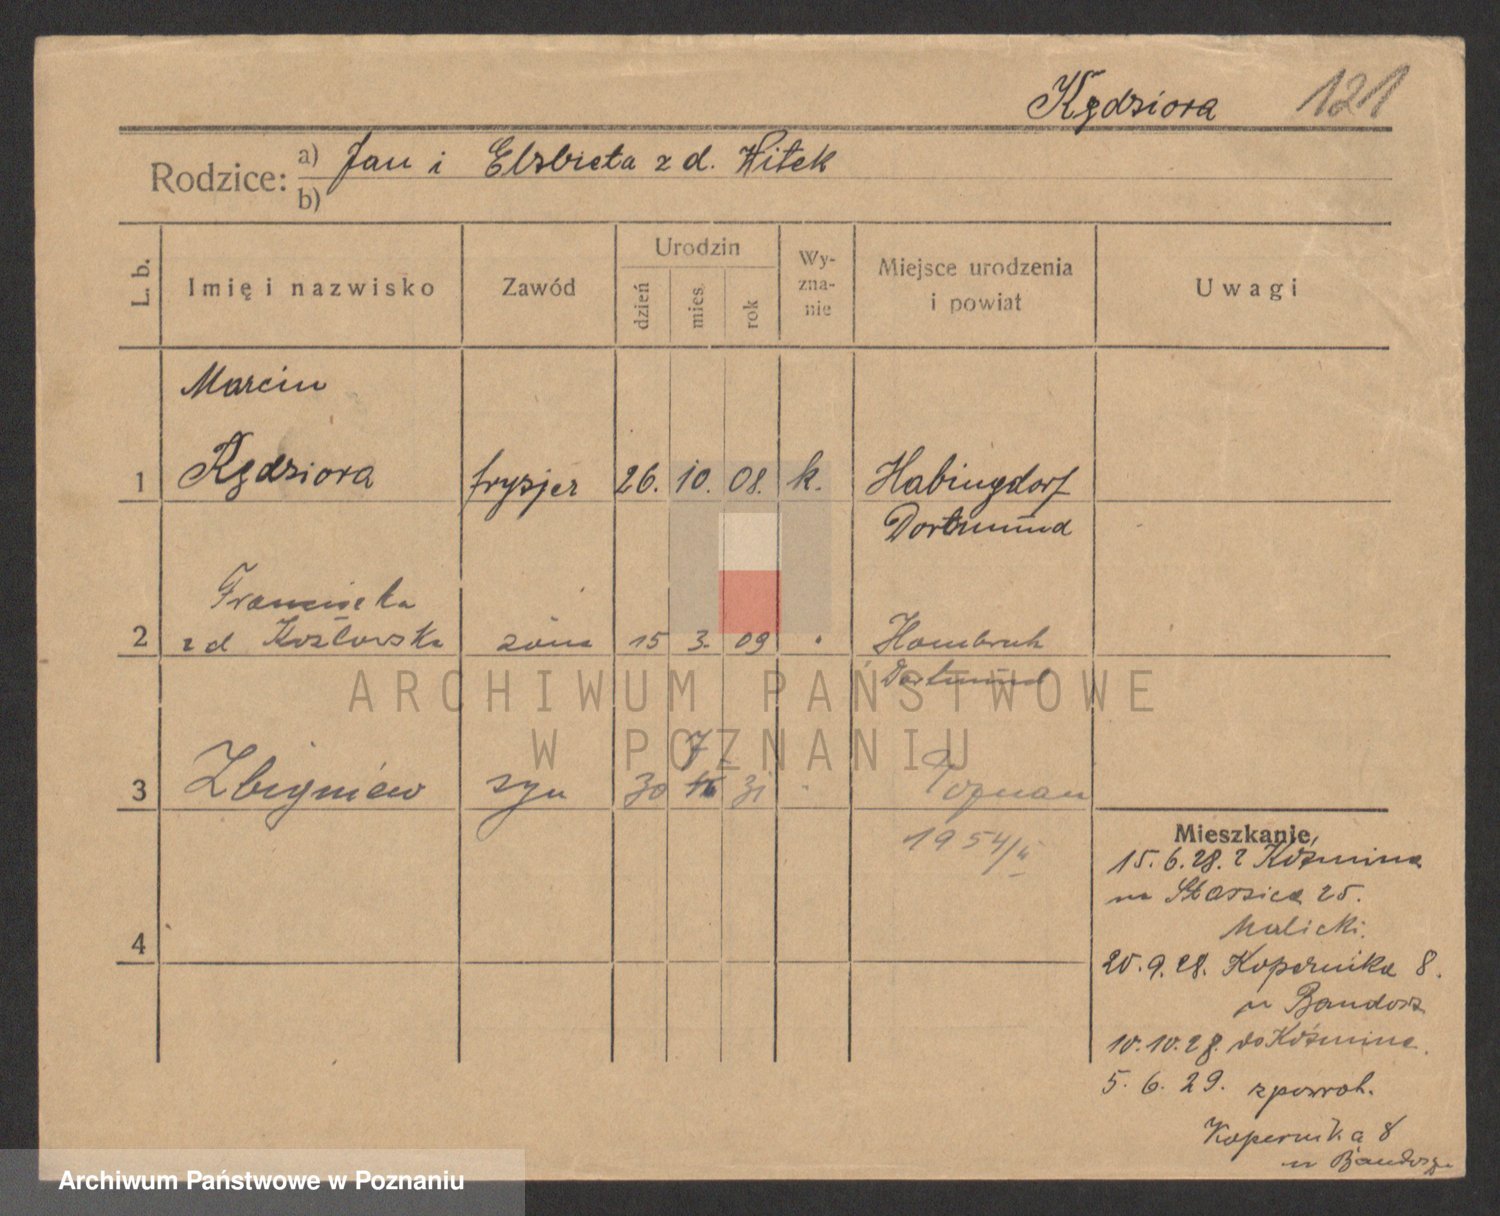 Kędziora 121
Rodzice: a) Jan i Elzbieta z d. Witek
b)
L. b. Imię i nazwisko Zawód Urodzin dzień mies. rok Wyznanie Miejsce urodzenia i powiat Uwagi
Marcin
1 Kędziora fryzjer 26. 10. 08. k. Habingdorf
Dortmund
Franciszka
2 z d Kozłowska żona 15 3. 09 Hombruch
Dortmund
ARCHIWUM PAŃSTWOWE
W POZNANIU
7
3 Zbigniew syn 30 31 Poznan
1954/
Mieszkanie
15. 6. 28. z Koźmina
Staszica 25.
Malicki.
4
20. 9. 28. Kopernika 8.
u Bandosz
10. 10. 28. do Koźmina.
5. 6. 29. zpowrot.
Kopernika 8
u Bandosza
Archiwum Państwowe w Poznaniu